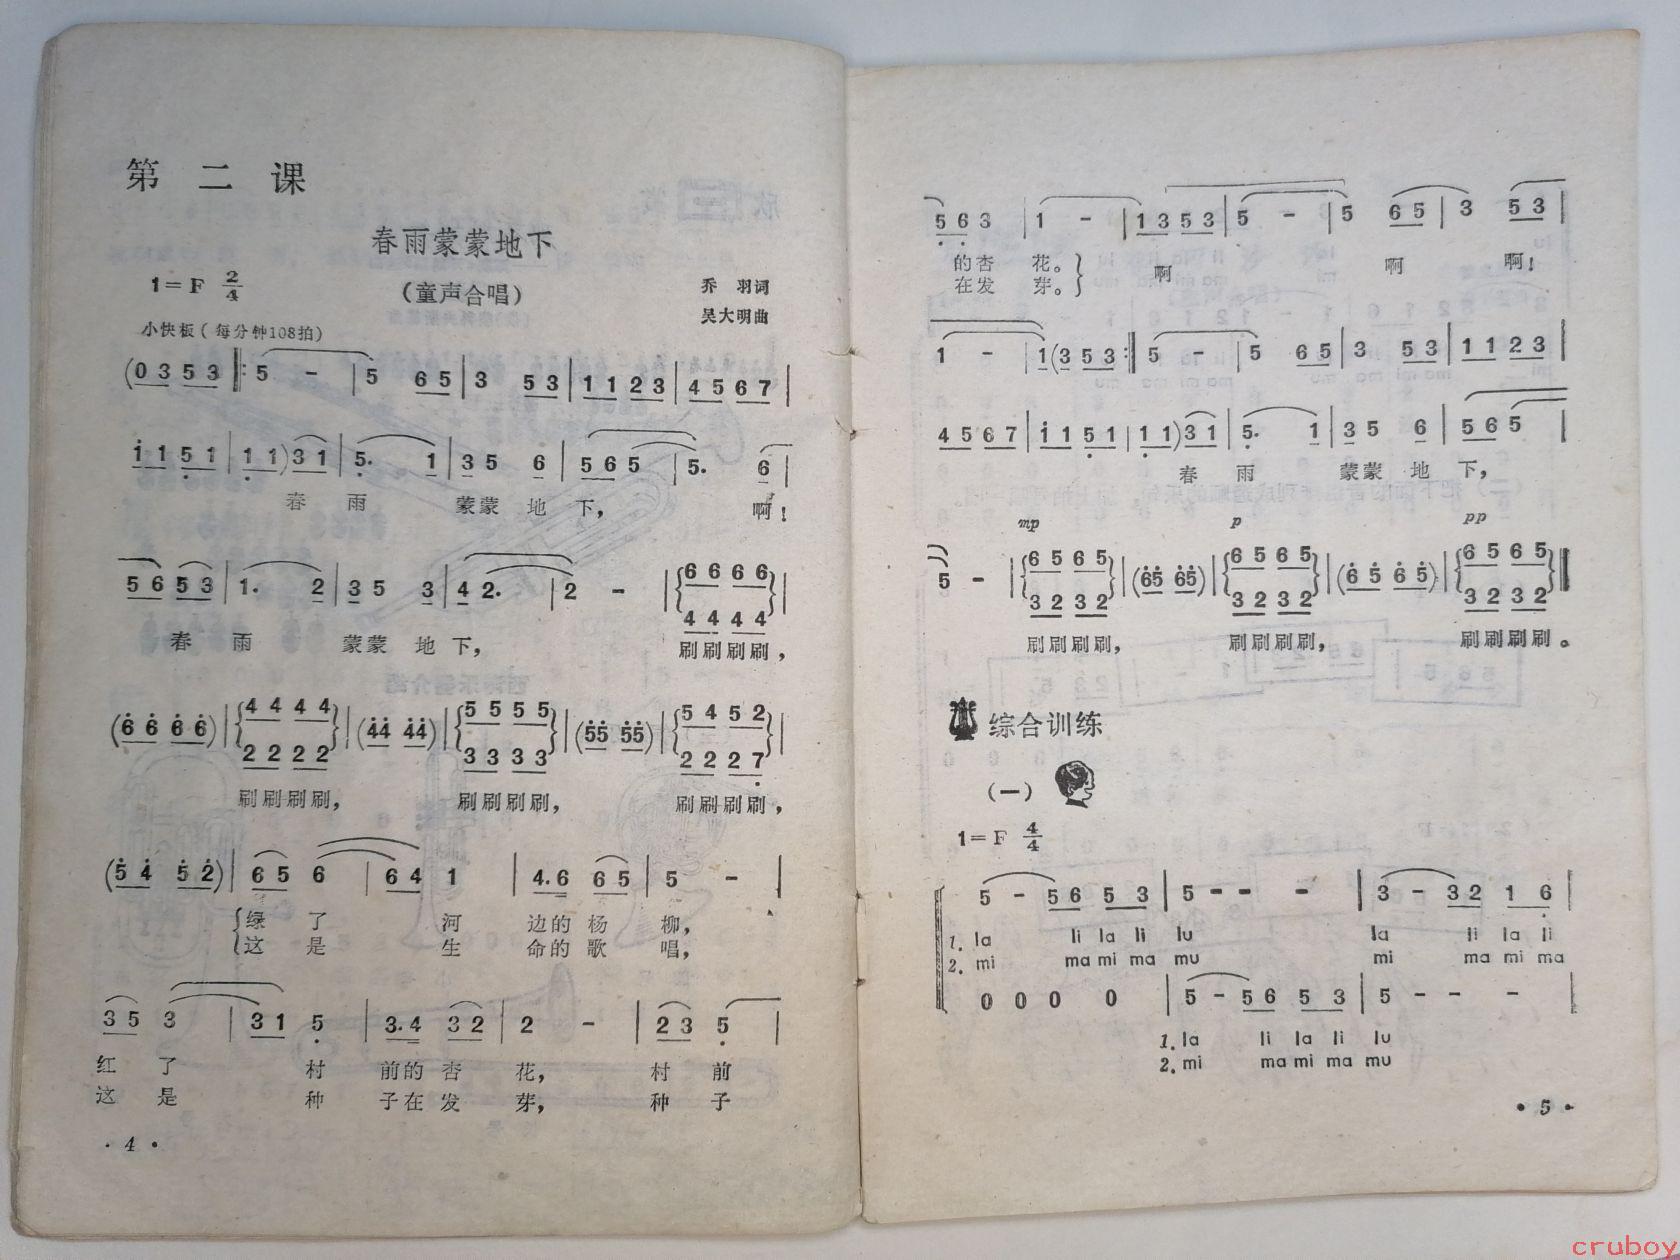 第二课
春雨蒙蒙地下
1=F 2/4
(童声合唱)
乔 羽词
吴大明曲
小快板(每分钟108拍)
(0 3 5 3 𝄆 5 - | 5 6 5 | 3 5 3 | 1 1 2 3 | 4 5 6 7 |
i 1 5 1 | 1 1) 3 1 | 5. 1 | 3 5 6 | 5 6 5 | 5. 6 |
春 雨 蒙蒙 地 下, 啊!
5 6 5 3 | 1. 2 | 3 5 3 | 4 2. | 2 - | {6 6 6 6 / 4 4 4 4} |
春 雨 蒙蒙 地 下, 刷刷刷刷,
(6 6 6 6) | {4 4 4 4 / 2 2 2 2} | (44 44) | {5 5 5 5 / 3 3 3 3} | (55 55) | {5 4 5 2 / 2 2 2 7} |
刷刷刷刷, 刷刷刷刷, 刷刷刷刷,
(5 4 5 2) | 6 5 6 | 6 4 1 | 4.6 6 5 | 5 - |
绿 了 河 边的 杨 柳,
这 是 生 命的 歌 唱,
3 5 3 | 3 1 5 | 3.4 3 2 | 2 - | 2 3 5 |
红 了 村 前的 杏 花, 村 前
这 是 种 子在 发 芽, 种 子
· 4 ·
5 6 3 | 1 - | 1 3 5 3 | 5 - | 5 6 5 | 3 5 3 |
的杏 花。 啊 啊 啊!
在发 芽。
1 - | 1 (3 5 3 𝄇 5 - | 5 6 5 | 3 5 3 | 1 1 2 3 |
4 5 6 7 | i 1 5 1 | 1 1) 3 1 | 5. 1 | 3 5 6 | 5 6 5 |
春 雨 蒙蒙 地 下,
mp p pp
5 - | {6 5 6 5 / 3 2 3 2} | (65 65) | {6 5 6 5 / 3 2 3 2} | (6 5 6 5) | {6 5 6 5 / 3 2 3 2} ‖
刷刷刷刷, 刷刷刷刷, 刷刷刷刷。
综合训练
(一)
1=F 4/4
5 - 5 6 5 3 | 5 - - - | 3 - 3 2 1 6 |
1. la li la li lu la li la li
2. mi ma mi ma mu mi ma mi ma
0 0 0 0 | 5 - 5 6 5 3 | 5 - - - |
1. la li la li lu
2. mi ma mi ma mu
· 5 ·
cruboy